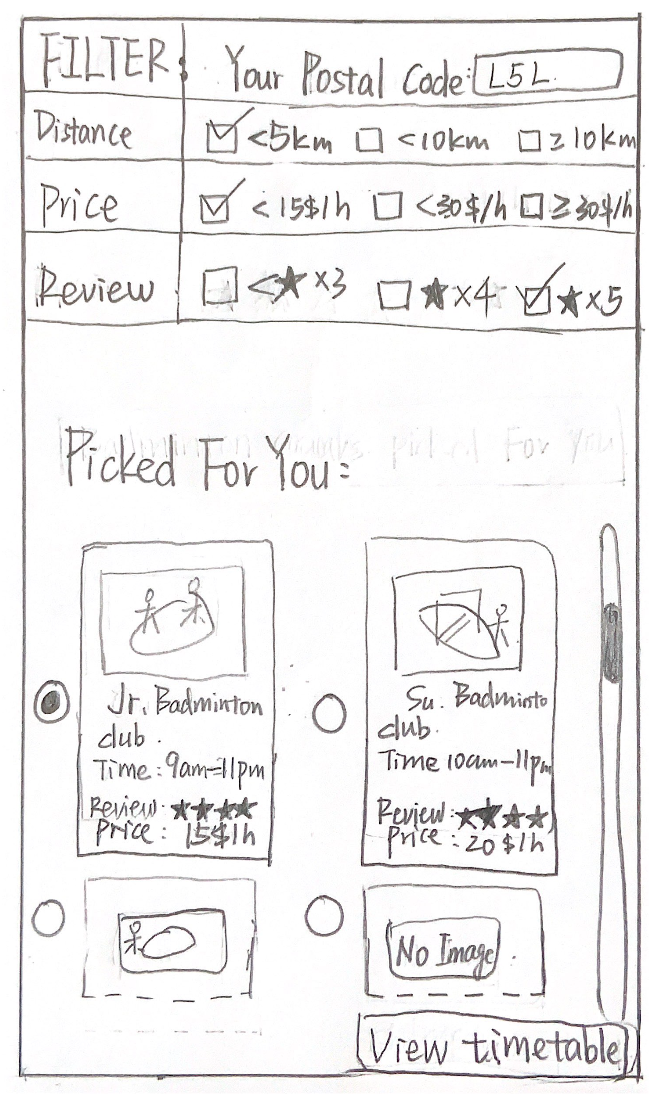 FILTER: Your Postal Code: L5L
Distance <5km <10km ≥10km
Price <15$/h <30$/h ≥30$/h
Review <★×3 ★×4 ★×5
Picked For You:
Jr. Badminton
club.
Time: 9am-11pm
Review: ★★★★
Price: 15$/h
Su. Badminto
club.
Time 10am-11pm
Review: ★★★★
Price: 20$/h
No Image
View timetable